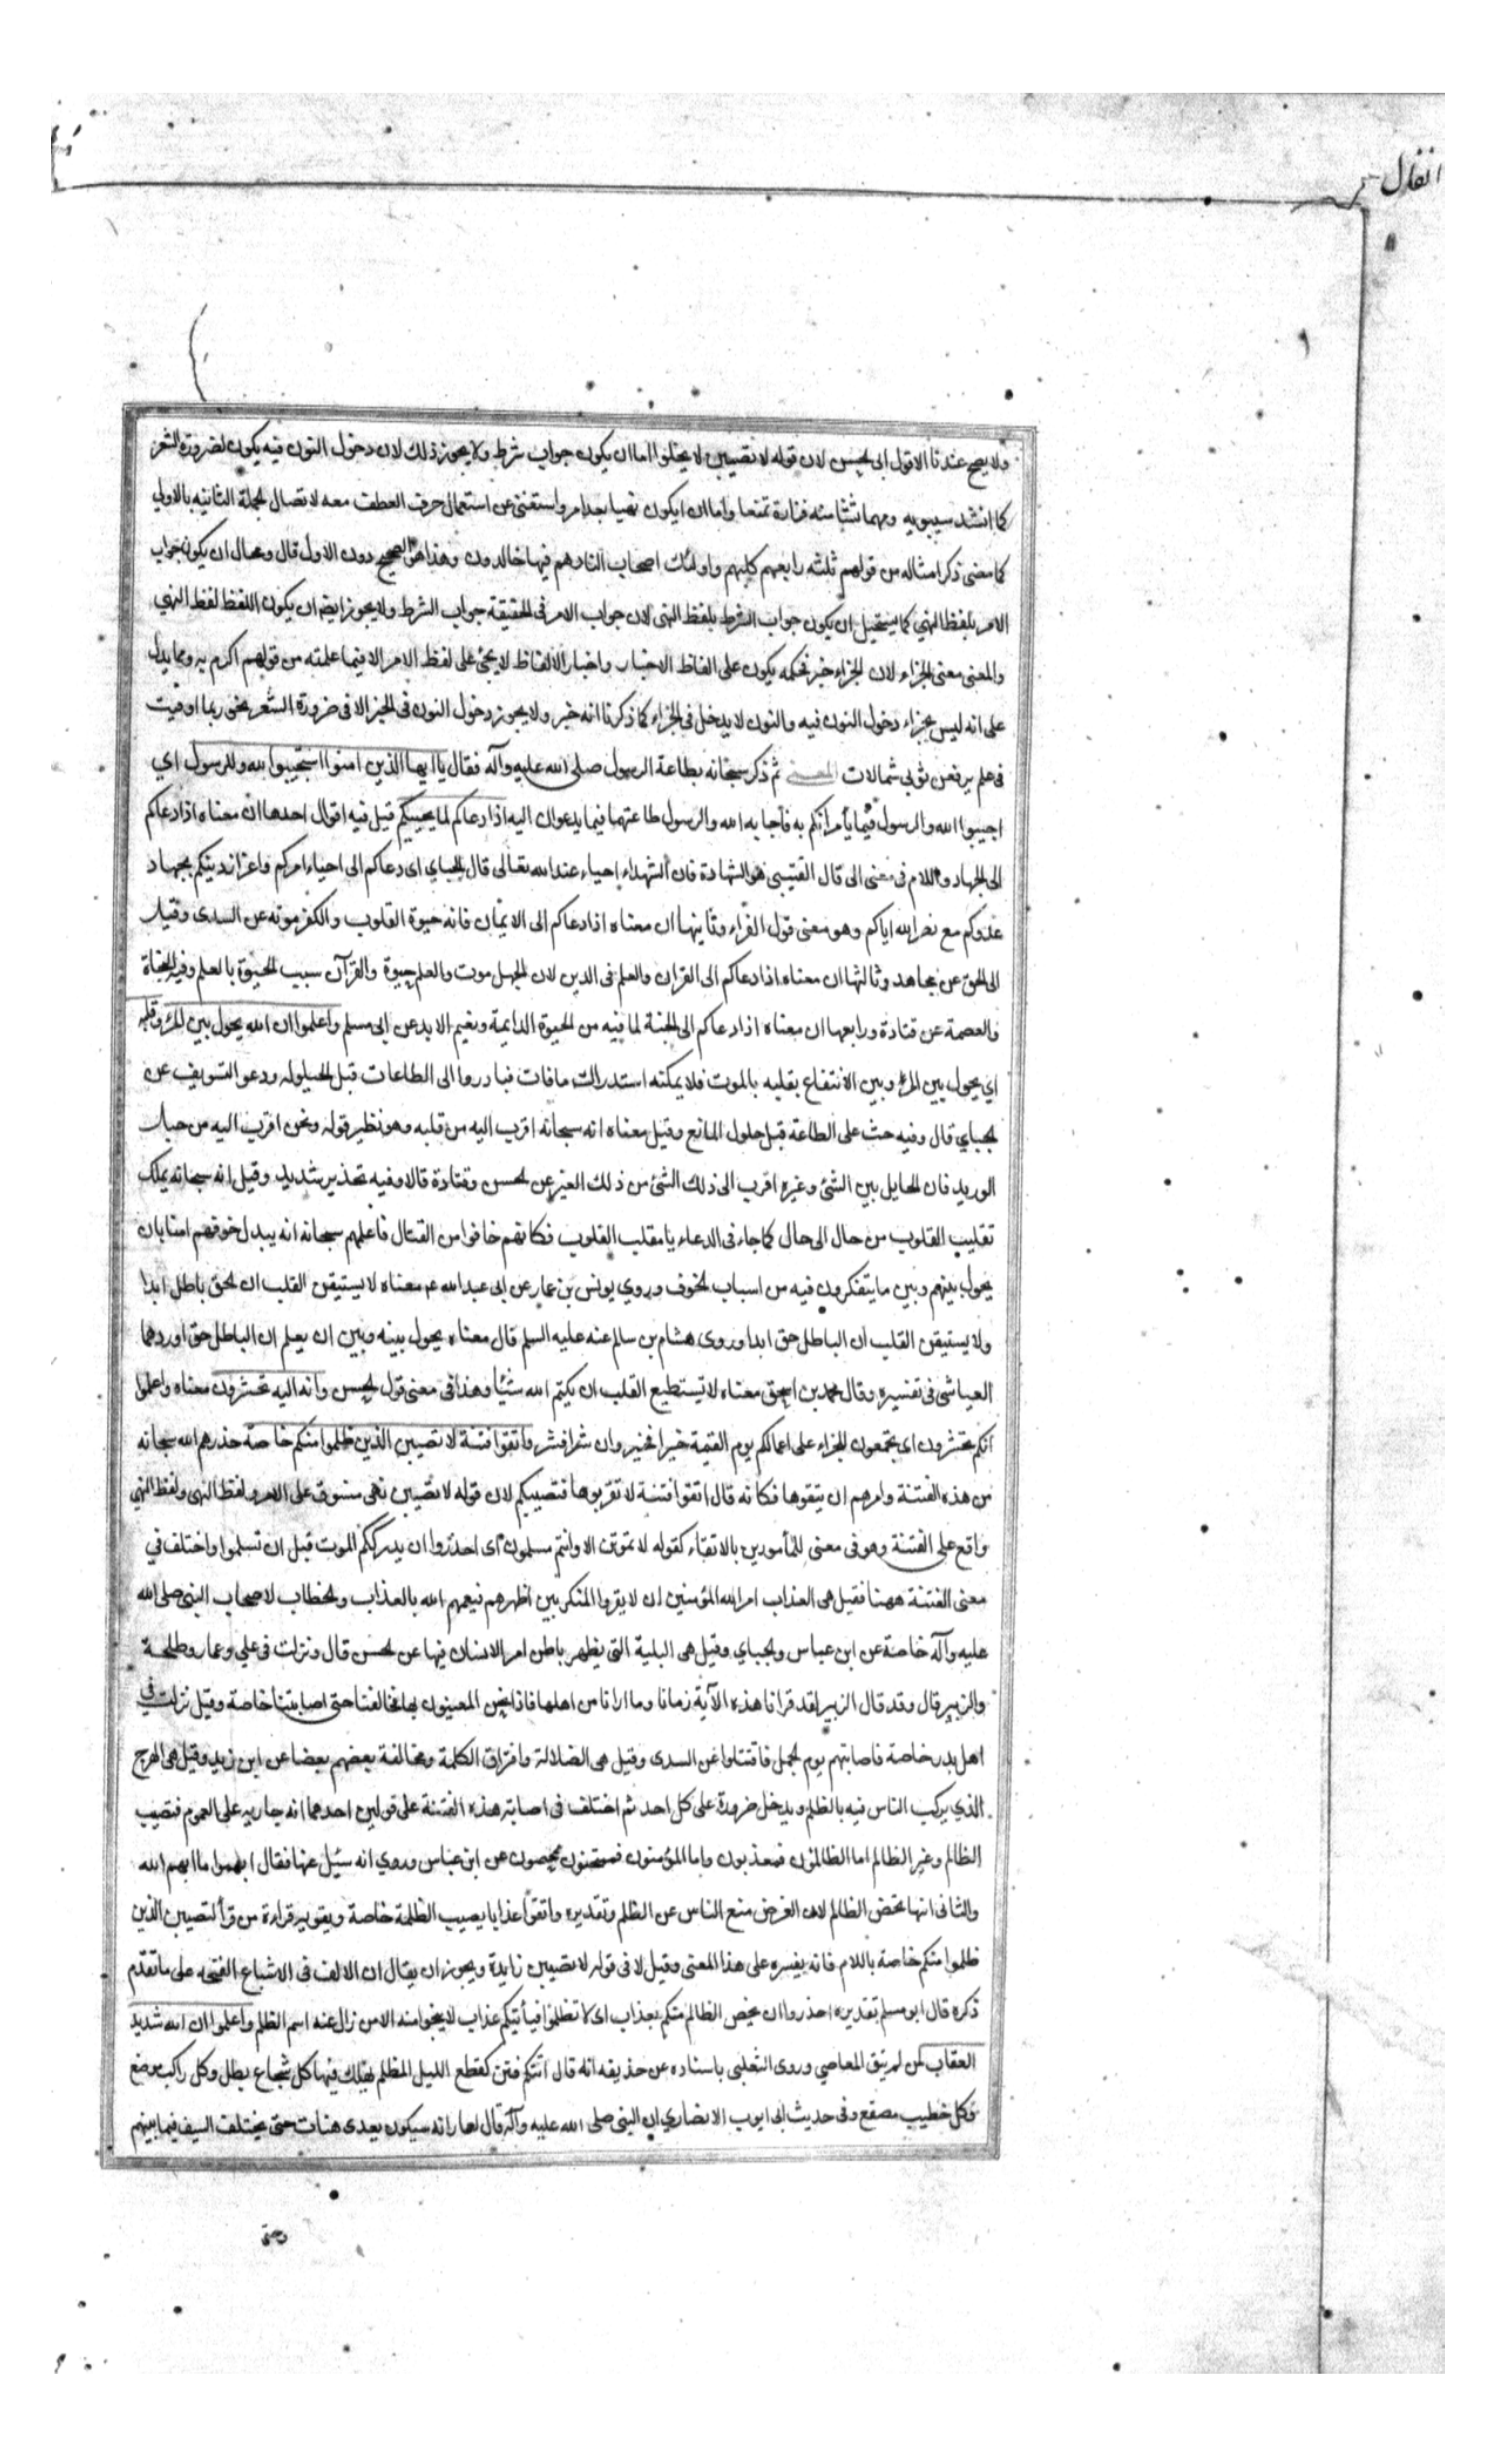 انفال
ولا يصح عندنا الا قول ابى الحسن لان قوله لا تصيبن لا يخلوا اما ان يكون جواب شرط ولا يجوز ذلك لان دخول النون فيه يكون لضرورة الشعر
كما انشد سيبويه ومهما تشأ منه فزارة تمنعا واما ان يكون نهيا بعد امر واستغنى عن استعمال حرف العطف معه لاتصال الجملة الثانيه بالاولى
كما مضى ذكر امثاله من قولهم ثلثة رابعهم كلبهم واولئك اصحاب النار هم فيها خالدون وهذا هو الصحيح دون الاول قال ومحال ان يكون جواب
الامر بلفظ النهي كما يستحيل ان يكون جواب الشرط بلفظ النهى لان جواب الامر فى الحقيقة جواب الشرط ولا يجوز ايضا ان يكون اللفظ لفظ النهي
والمعنى معنى الجزاء لان الجزاء خبر فحكمه يكون على الفاظ الاخبار واخبار الالفاظ لا يجئ على لفظ الامر الا فيما علمته من قولهم اكرم به ومما يدل
على انه ليس بجزاء دخول النون فيه والنون لا يدخل فى الجزاء كما ذكرنا انه خبر ولا يجوز دخول النون فى الخبر الا فى ضرورة الشعر نحو ربما اوفيت
فى علم يرفعن ثوبى شمالات المعنى ثم ذكر سبحانه بطاعة الرسول صلى الله عليه وآله فقال يا ايها الذين امنوا استجيبوا لله وللرسول اي
اجيبوا الله والرسول فيما يأمرانكم به فاجابه الله والرسول طاعتهما فيما يدعوان اليه اذا دعاكم لما يحييكم قيل فيه اقوال احدها ان معناه اذا دعاكم
الى الجهاد واللام فى معنى الى قال القتيبى هو الشهادة فان الشهداء احياء عند الله تعالى قال الجباي اى دعاكم الى احياء امركم واعزاز دينكم بجهاد
عدوكم مع نصر الله اياكم وهو معنى قول الفراء وثانيها ان معناه اذا دعاكم الى الايمان فانه حيوة القلوب والكفر موته عن السدى وقيل
الى الحق عن مجاهد وثالثها ان معناه اذا دعاكم الى القران والعلم فى الدين لان الجهل موت والعلم حيوة والقرآن سبب الحيوة بالعلم وفيه النجاة
والعصمة عن قتادة ورابعها ان معناه اذا دعاكم الى الجنة لما فيه من الحيوة الدايمة ونعيم الابد عن ابى مسلم واعلموا ان الله يحول بين المرء وقلبه
اي يحول بين المرء وبين الانتفاع بقلبه بالموت فلا يمكنه استدراك ما فات فبادروا الى الطاعات قبل الحيلوله ودعوا التسويف عن
الجباي قال وفيه حث على الطاعة قبل حلول المانع وقيل معناه انه سبحانه اقرب اليه من قلبه وهو نظير قوله ونحن اقرب اليه من حبل
الوريد فان الحايل بين الشئ وغيره اقرب الى ذلك الشئ من ذلك الغير عن الحسن وقتادة قالا وفيه تحذير شديد وقيل انه سبحانه يملك
تقليب القلوب من حال الى حال كما جاء فى الدعاء يا مقلب القلوب فكانهم خافوا من القتال فاعلمهم سبحانه انه يبدل خوفهم امنا بان
يحول بينهم وبين ما يتفكرون فيه من اسباب الخوف وروي يونس بن عمار عن ابى عبد الله عم معناه لا يستيقن القلب ان الحق باطل ابدا
ولا يستيقن القلب ان الباطل حق ابدا وروى هشام بن سالم عنه عليه السلم قال معناه يحول بينه وبين ان يعلم ان الباطل حق اوردهما
العياشى فى تفسيره وقال محمد بن اسحق معناه لا يستطيع القلب ان يكتم الله شيئا وهذا فى معنى قول الحسن وانه اليه تحشرون معناه واعلموا
انكم تحشرون اى تجمعون للجزاء على اعمالكم يوم القيمة خيرا فخير وان شرا فشر واتقوا فتنة لا تصيبن الذين ظلموا منكم خاصة حذرهم الله سبحانه
من هذه الفتنة وامرهم ان يتقوها فكانه قال اتقوا فتنة لا تقربوها فتصيبكم لان قوله لا تصيبن نهى مسوق على الامر ولفظ النهى ولفظ النهي
واقع على الفتنة وهو فى معنى للمأمورين بالاتقاء كقوله لا تموتن الا وانتم مسلمون اى احذروا ان يدرككم الموت قبل ان تسلموا واختلف في
معنى الفتنة ههنا فقيل هى العذاب امر الله المؤمنين ان لا يقروا المنكر بين اظهرهم فيعمهم الله بالعذاب والخطاب لاصحاب النبى صلى الله
عليه وآله خاصة عن ابن عباس والجباي وقيل هى البلية التى يظهر باطن امر الانسان فيها عن الحسن قال ونزلت فى علي وعمار وطلحة
والزبير قال وقد قال الزبير لقد قرانا هذه الآية زمانا وما ارانا من اهلها فاذا نحن المعنيون بها فخالفنا حتى اصابتنا خاصة وقيل نزلت في
اهل بدر خاصة فاصابتهم يوم الجمل فاقتتلوا عن السدى وقيل هى الضلالة وافتراق الكلمة ومخالفة بعضهم بعضا عن ابن زيد وقيل هى الهرج
الذي يركب الناس فيه بالظلم ويدخل ضرره على كل احد ثم اختلف فى اصابة هذه الفتنة على قولين احدهما انه جاريه على العموم فتصيب
الظالم وغير الظالم اما الظالمون فمعذبون واما المؤمنون فممتحنون ممحصون عن ابن عباس وروي انه سئل عنها فقال ابهموا ما ابهم الله
والثانى انها تخص الظالم لان الغرض منع الناس عن الظلم وتقديره واتقوا عذابا يصيب الظلمة خاصة ويقويه قراءة من قرأ لتصيبن الذين
ظلموا منكم خاصة باللام فانه يفسره على هذا المعنى وقيل لا فى قوله لا تصيبن زايدة ويجوز ان يقال ان الالف فى الاشباع الفتحه على ما تقدم
ذكره قال ابو مسلم تقديره احذروا ان يخص الظالم منكم بعذاب اى لا تظلموا فيأتيكم عذاب لا ينجوا منه الا من زال عنه اسم الظلم واعلموا ان الله شديد
العقاب لمن لم يتق المعاصي وروى الثعلبى باسناده عن حذيفه انه قال اتتكم فتن كقطع الليل المظلم يهلك فيها كل شجاع بطل وكل راكب موضع
وكل خطيب مصقع وفى حديث ابى ايوب الانصاري ان النبى صلى الله عليه وآله قال لعمار انه سيكون بعدى هنات حتى يختلف السيف فيما بينهم
وحتى